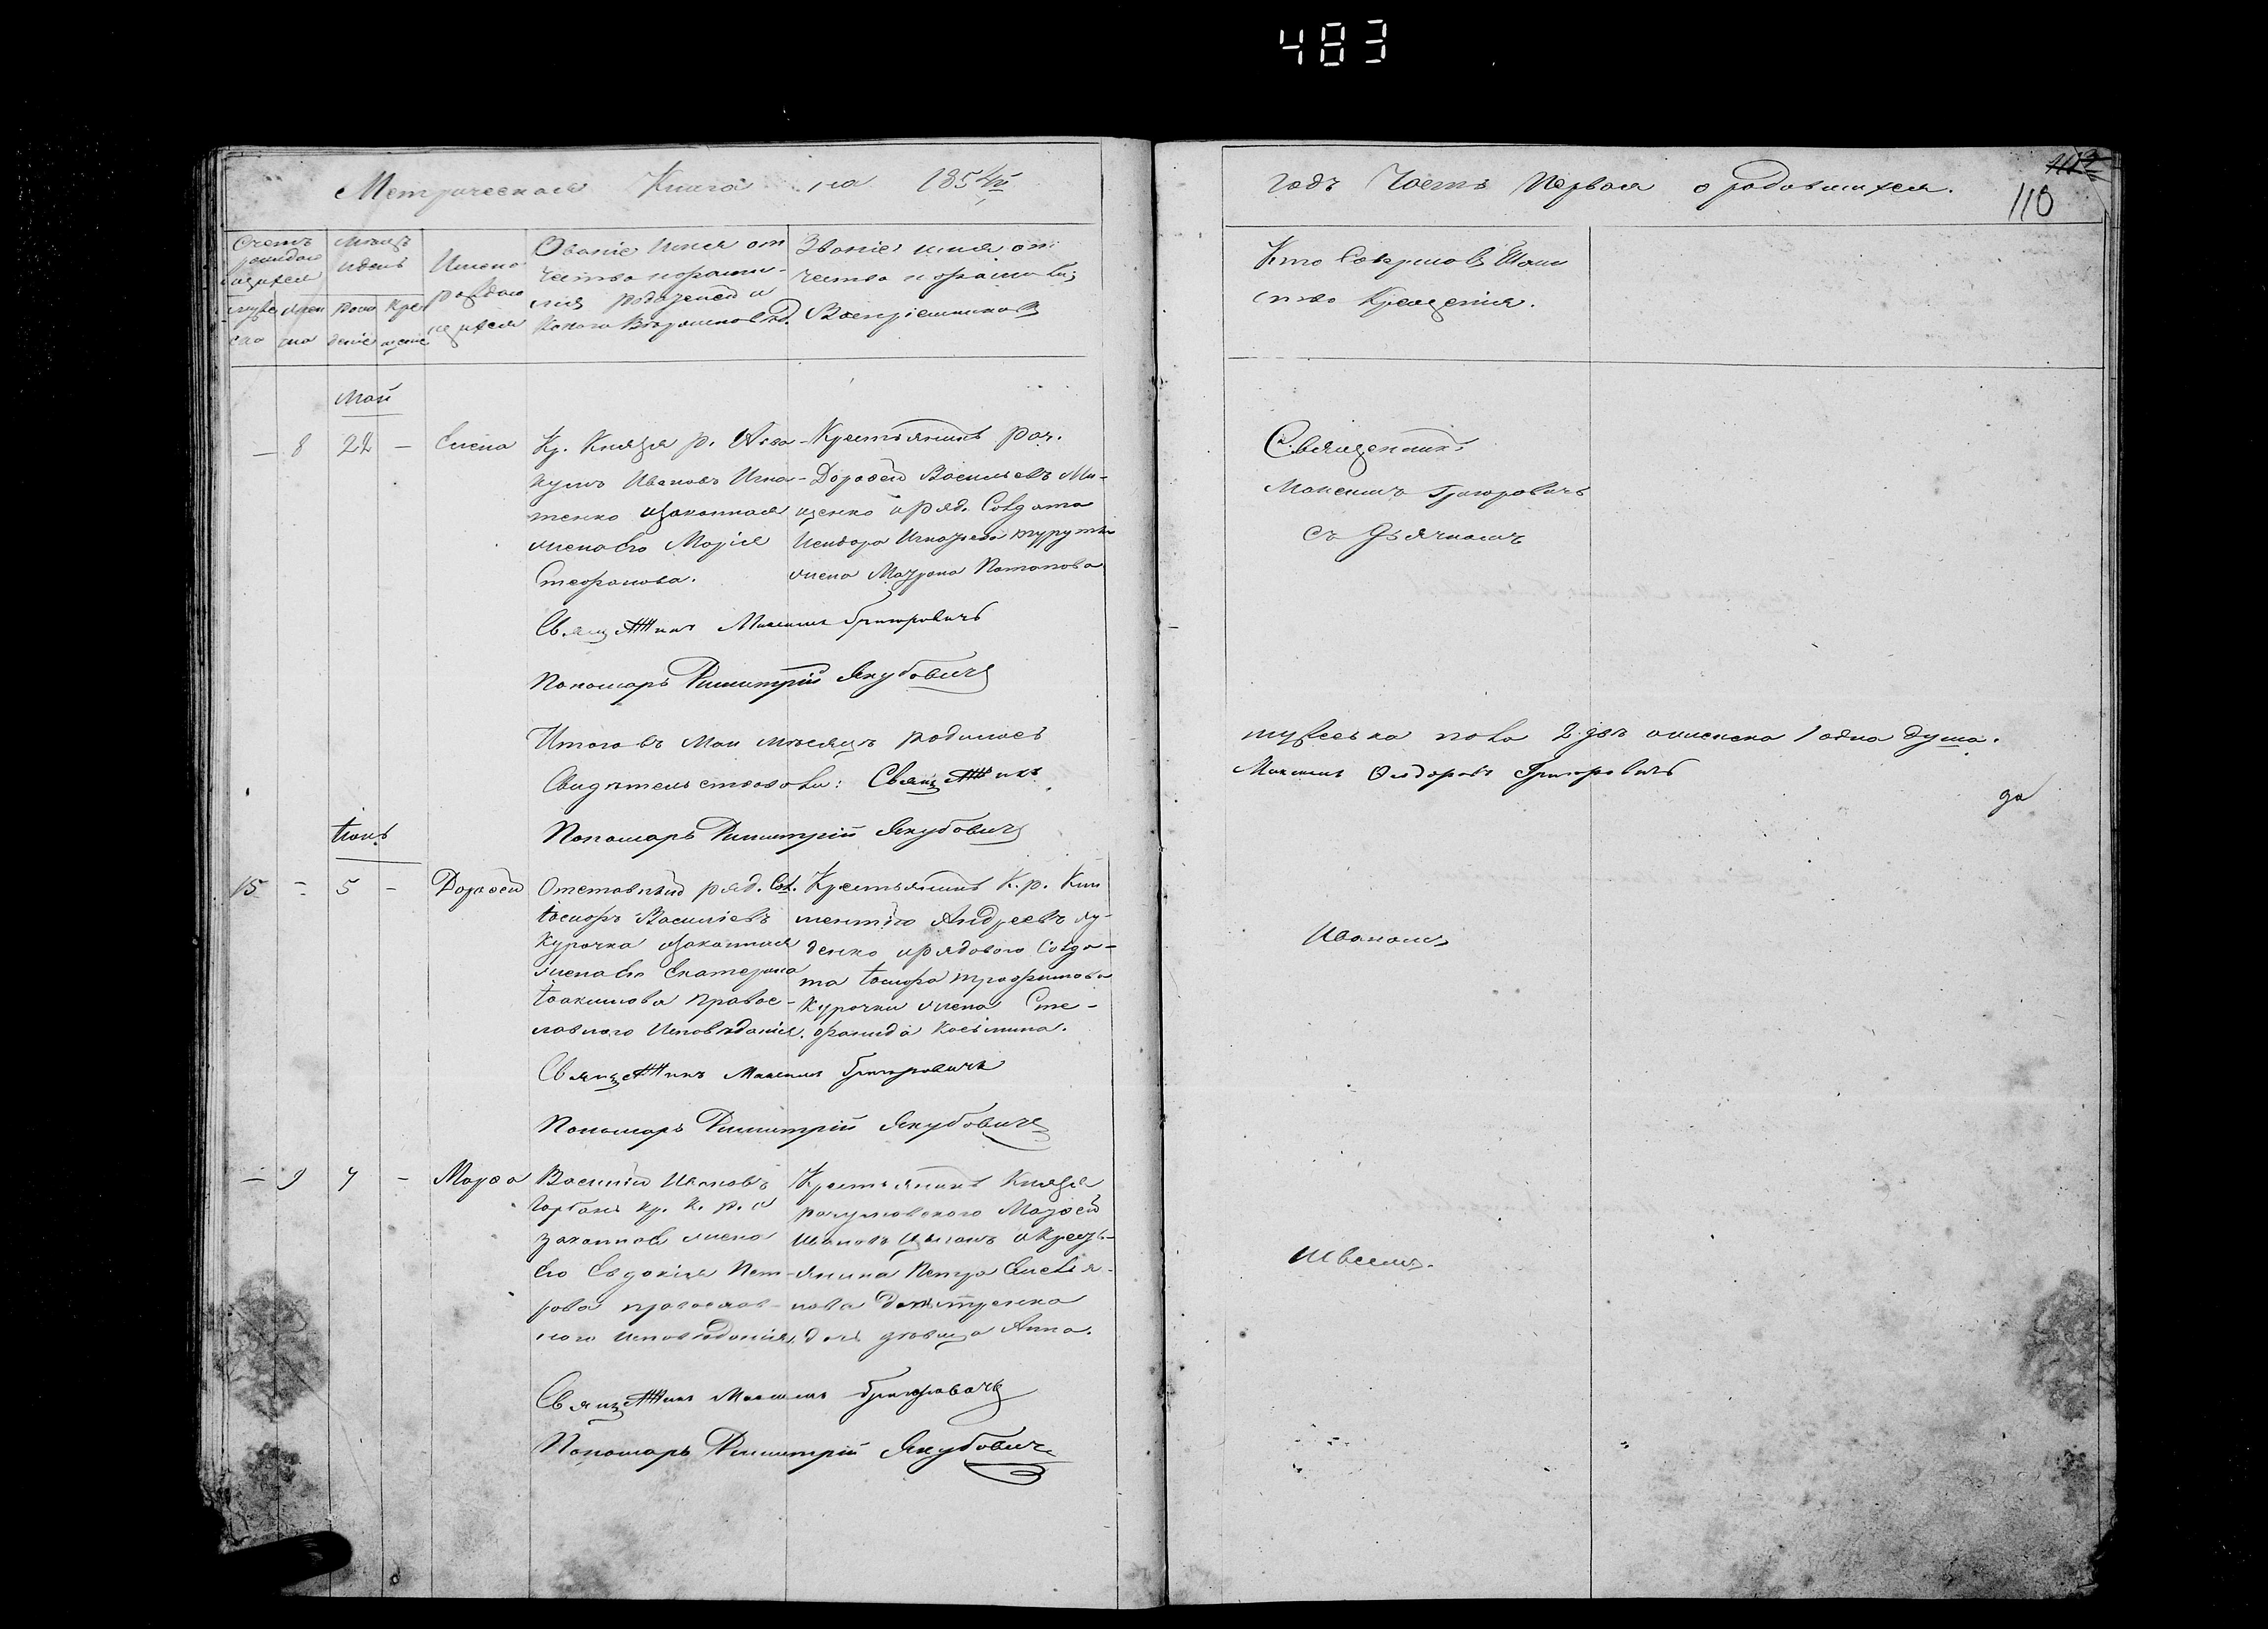 483
Метрическая Книга на 1854й
годъ Часть Первая о родившихся.
110
Счетъ
родив
шихся
муже
ска
жен
ска
Мѣсяцъ
и день
рож
денiе
кре
щенiе
Имена
родив
шихся
Званiе Имя от
чество и фами-
лiя родителей и
Какого Вѣроисповѣд.
Званiе имя от
чество и фамилiя
Воспрiемниковъ
Кто Совершалъ Таин
ство Крещенiя.
Май
— 8 22 — Елена
Кр. Князя р.
Ивановъ Игна-
тенко и законная
жена его Марiя
Стефанова.
Крестьянинъ раз.
Дорофей Васильевъ
щенко и ряд. Солдата
Исидора
жена Матрона Потапова
Священникъ
Максимъ Григоровичъ
съ Дьячкомъ
Священникъ Максимъ Григоровичъ
Пономарь Димитрiй Якубовичъ
Итого въ Маи мѣсяцѣ родилось
мужеска пола 2 два женска 1 одна душа.
Свидѣтельствовали: Священникъ
Максимъ Федоровъ Григоровичъ
Пономарь Димитрiй Якубовичъ
Iюнь
15 — 5 — Дорофей
Отставный ряд. Сол.
Iосифъ Васильевъ
Курочка и законная
жена его Екатерина
Iоакимова правос-
лавнаго Исповѣданiя.
Крестьянинъ К. р.
Андреевъ
денко и рядового Солда-
та Iосифа Трофимова
Курочки жена Сте-
фанида Косьмина.
Иваномъ
Священникъ Максимъ Григоровичъ
Пономарь Димитрiй Якубовичъ
— 9 7 — Марфа
Василiй Ивановъ
Горбань кр. К. р. и
законная жена
его Евдокiя Пет-
рова православ-
наго исповѣданiя.
Крестьянинъ Князя
разумовскаго
Ивановъ Цыганъ и Кресть-
янина Петра
нова Дмитренка
дочь дѣвица Анна.
Священникъ Максимъ Григоровичъ
Пономарь Димитрiй Якубовичъ